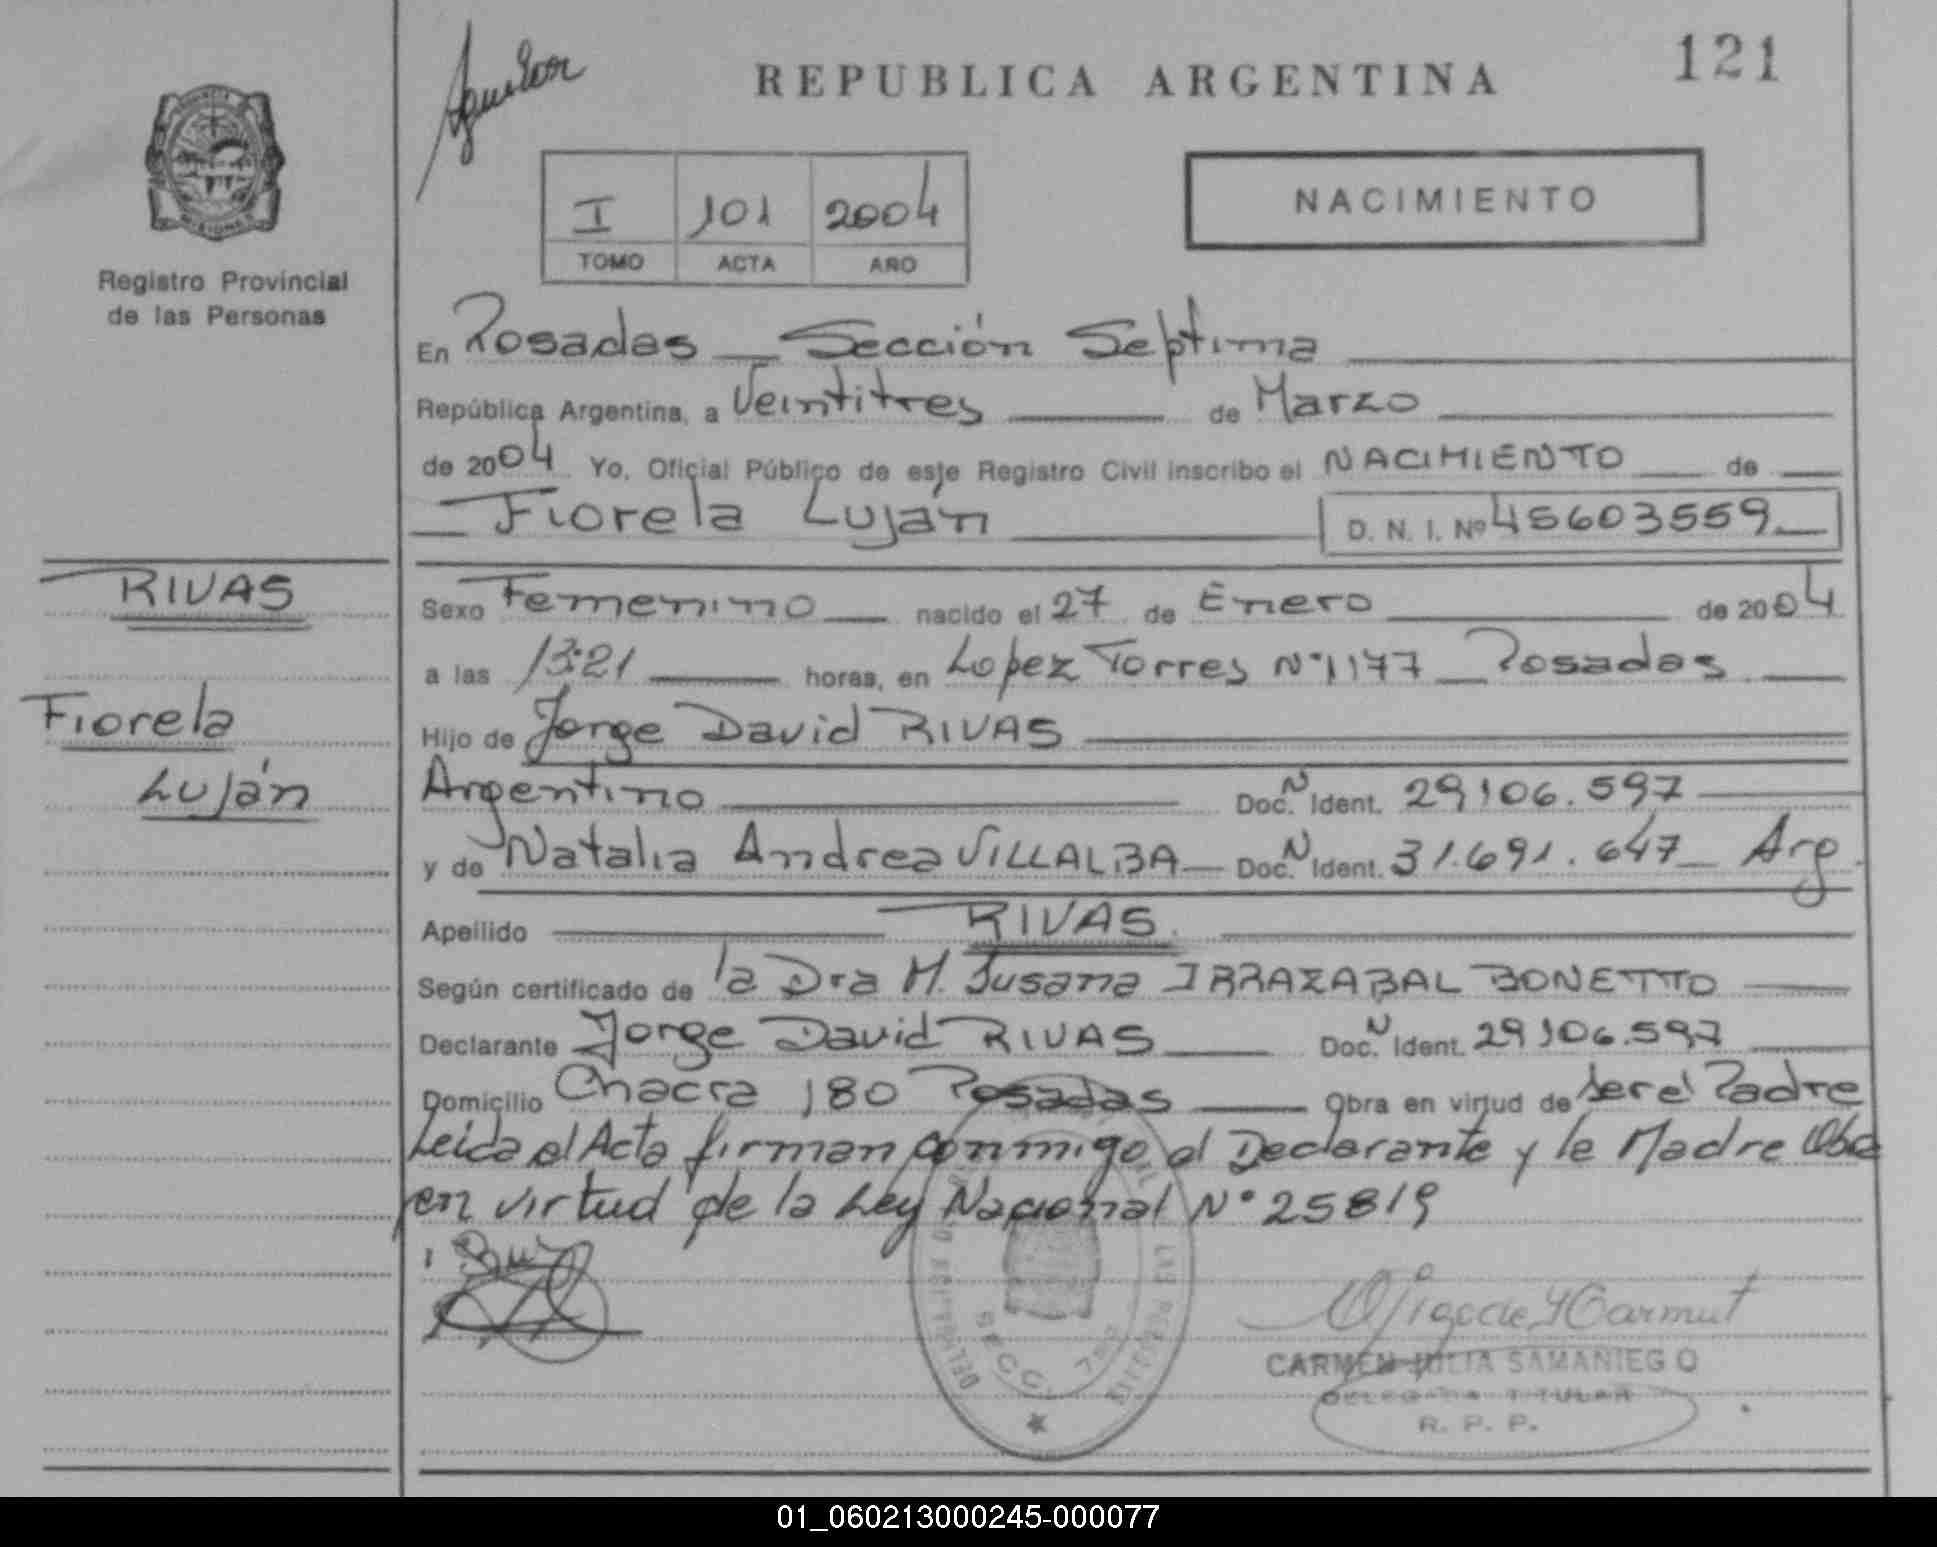 REPUBLICA ARGENTINA
121
I 101 2004
TOMO ACTA AÑO
NACIMIENTO
Registro Provincial
de las Personas
En Posadas — Sección Septima
República Argentina, a Veintitres de Marzo
de 2004 Yo, Oficial Público de este Registro Civil inscribo el NACIMIENTO de
Fiorela Luján D. N. I. Nº 45603559
RIVAS
Fiorela
Luján
Sexo Femenino nacido el 27 de Enero de 2004
a las 13:21 horas, en Lopez Torres Nº 1177 — Posadas
Hijo de Jorge David RIVAS
Argentino Doc. N Ident. 29106.597
y de Natalia Andrea VILLALBA — Doc. N Ident. 31.691.647 — Arg.
Apellido RIVAS.
Según certificado de la Dra M. Susana IRRAZABAL BONETTO
Declarante Jorge David RIVAS Doc. N Ident. 29106.597
Domicilio Chacra 180 Posadas Obra en virtud de ser el Padre
Leida el Acta firman conmigo el Declarante y la Madre
en virtud de la Ley Nacional Nº 25819
SECC. 7
CARMEN JULIA SAMANIEGO
DELEGADA TITULAR
R. P. P.
01_060213000245-000077